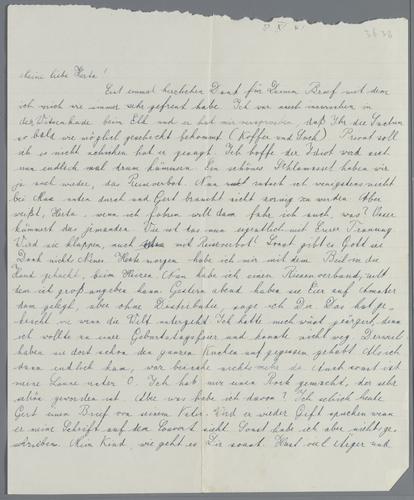 5. XI. 41
Meine liebe Herta!
Erst einmal herzlichen Dank für Deinen Brief mit dem
ich mich wie immer sehr gefreut habe. Ich war auch inzwischen in
der beim und er hat mir versprochen, daß Ihr die Sachen
so bald wie möglich geschickt bekommt (Koffer und Sack) Privat soll
ich es nicht schicken hat er gesagt. Ich hoffe der Idiot wird sich
nun endlich mal drum kümmern. Ein schönes Schlamassel haben wir
ja auch wieder, das Reiseverbot. Nun rutsch ich wenigstens nicht
bei Max unten durch und Gert braucht nicht zornig zu werden. Aber
weißt, Herta, wenn ich fahren will dann fahr ich auch, was? Unser
kümmert das jemanden. Wie ist das nun eigentlich mit Eurer Trauung
Wird sie klappen, auch mit Reiseverbot? Sonst gibt es Gott sei
Dank nichts Neues. Heute morgen habe ich mir mit dem Beil in die
Hand gehackt, beim Nun habe ich einen Riesenverband, mit
dem ich groß angeben kann. Gestern abend haben sie Eier auf
dem gelegt, aber ohne sage ich Dir. Das hat ge-
kracht wie wenn die Welt untergeht. Ich hatte mich wüst geärgert, denn
ich wollte zu einer Geburtstagsfeier und konnte nicht weg. Derweil
haben sie dort schon den ganzen Kuchen aufgegessen gehabt. Als ich
dann endlich kam, war beinahe nichts mehr da. Auch sonst ist
meine Laune unter 0. Ich hab mir einen Rock gemacht, der sehr
schön geworden ist. Aber was habe ich davon? Ich schrieb heute
Gert einen Brief von seinem Vater. Wird er wieder Gift spucken wenn
er meine Schrift auf dem sieht. Sonst habe ich aber nichts ge-
schrieben. Mein Kind, wie geht es Dir sonst. Hast viel Ärger und